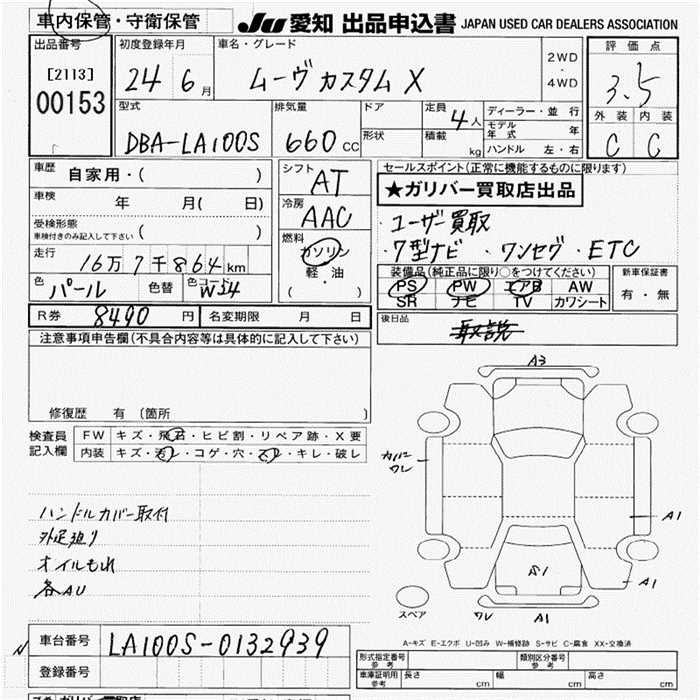 車内保管・守衛保管 JU 愛知 出品申込書 JAPAN USED CAR DEALERS ASSOCIATION
出品番号 初度登録年月 車名・グレード 2WD・4WD 評価点
[2113] 24 6月 ムーヴカスタム X 3.5
00153 型式 排気量 ドア 定員 4人 ディーラー・並行 外装 内装
モデル年式 年
DBA-LA100S 660cc 形状 積載 kg ハンドル 左・右 C C
車歴 自家用・( ) シフト AT セールスポイント(正常に機能するものに限ります)
車検 年 月( 日) 冷房 AAC ★ガリバー買取店出品
受検形態 ( ) ・ユーザー買取
車検付きのみ記入して下さい 燃料 ・7型ナビ ・ワンセグ・ETC
走行 16万7千864km ガソリン 装備品(純正品に限り○をつけてください) 新車保証書
軽・油 PS PW エアB AW 有・無
色 パール 色替 色コード W24 ( ) SR ナビ TV カワシート
R券 8490円 名変期限 月 日 後日品
取説
注意事項申告欄(不具合内容等は具体的に記入して下さい)
A3
修復歴 有 (箇所 )
検査員 FW キズ・飛石・ヒビ割・リペア跡・X要
記入欄 内装 キズ・汚レ・コゲ・穴・スレ・キレ・破レ
カバー
ワレ
ハンドルカバー取付 A1
外足廻り
オイルもれ
各AU A1 A1
スペア ワレ A1
A-キズ E-エクボ U-凹み W-補修跡 S-サビ C-腐食 XX-交換済
車台番号 LA100S-0132939
形式指定番号 参考 類別区分番号 参考
登録番号 車庫証明用 参考 長さ cm 幅 cm 高さ cm
ガリバー買取店